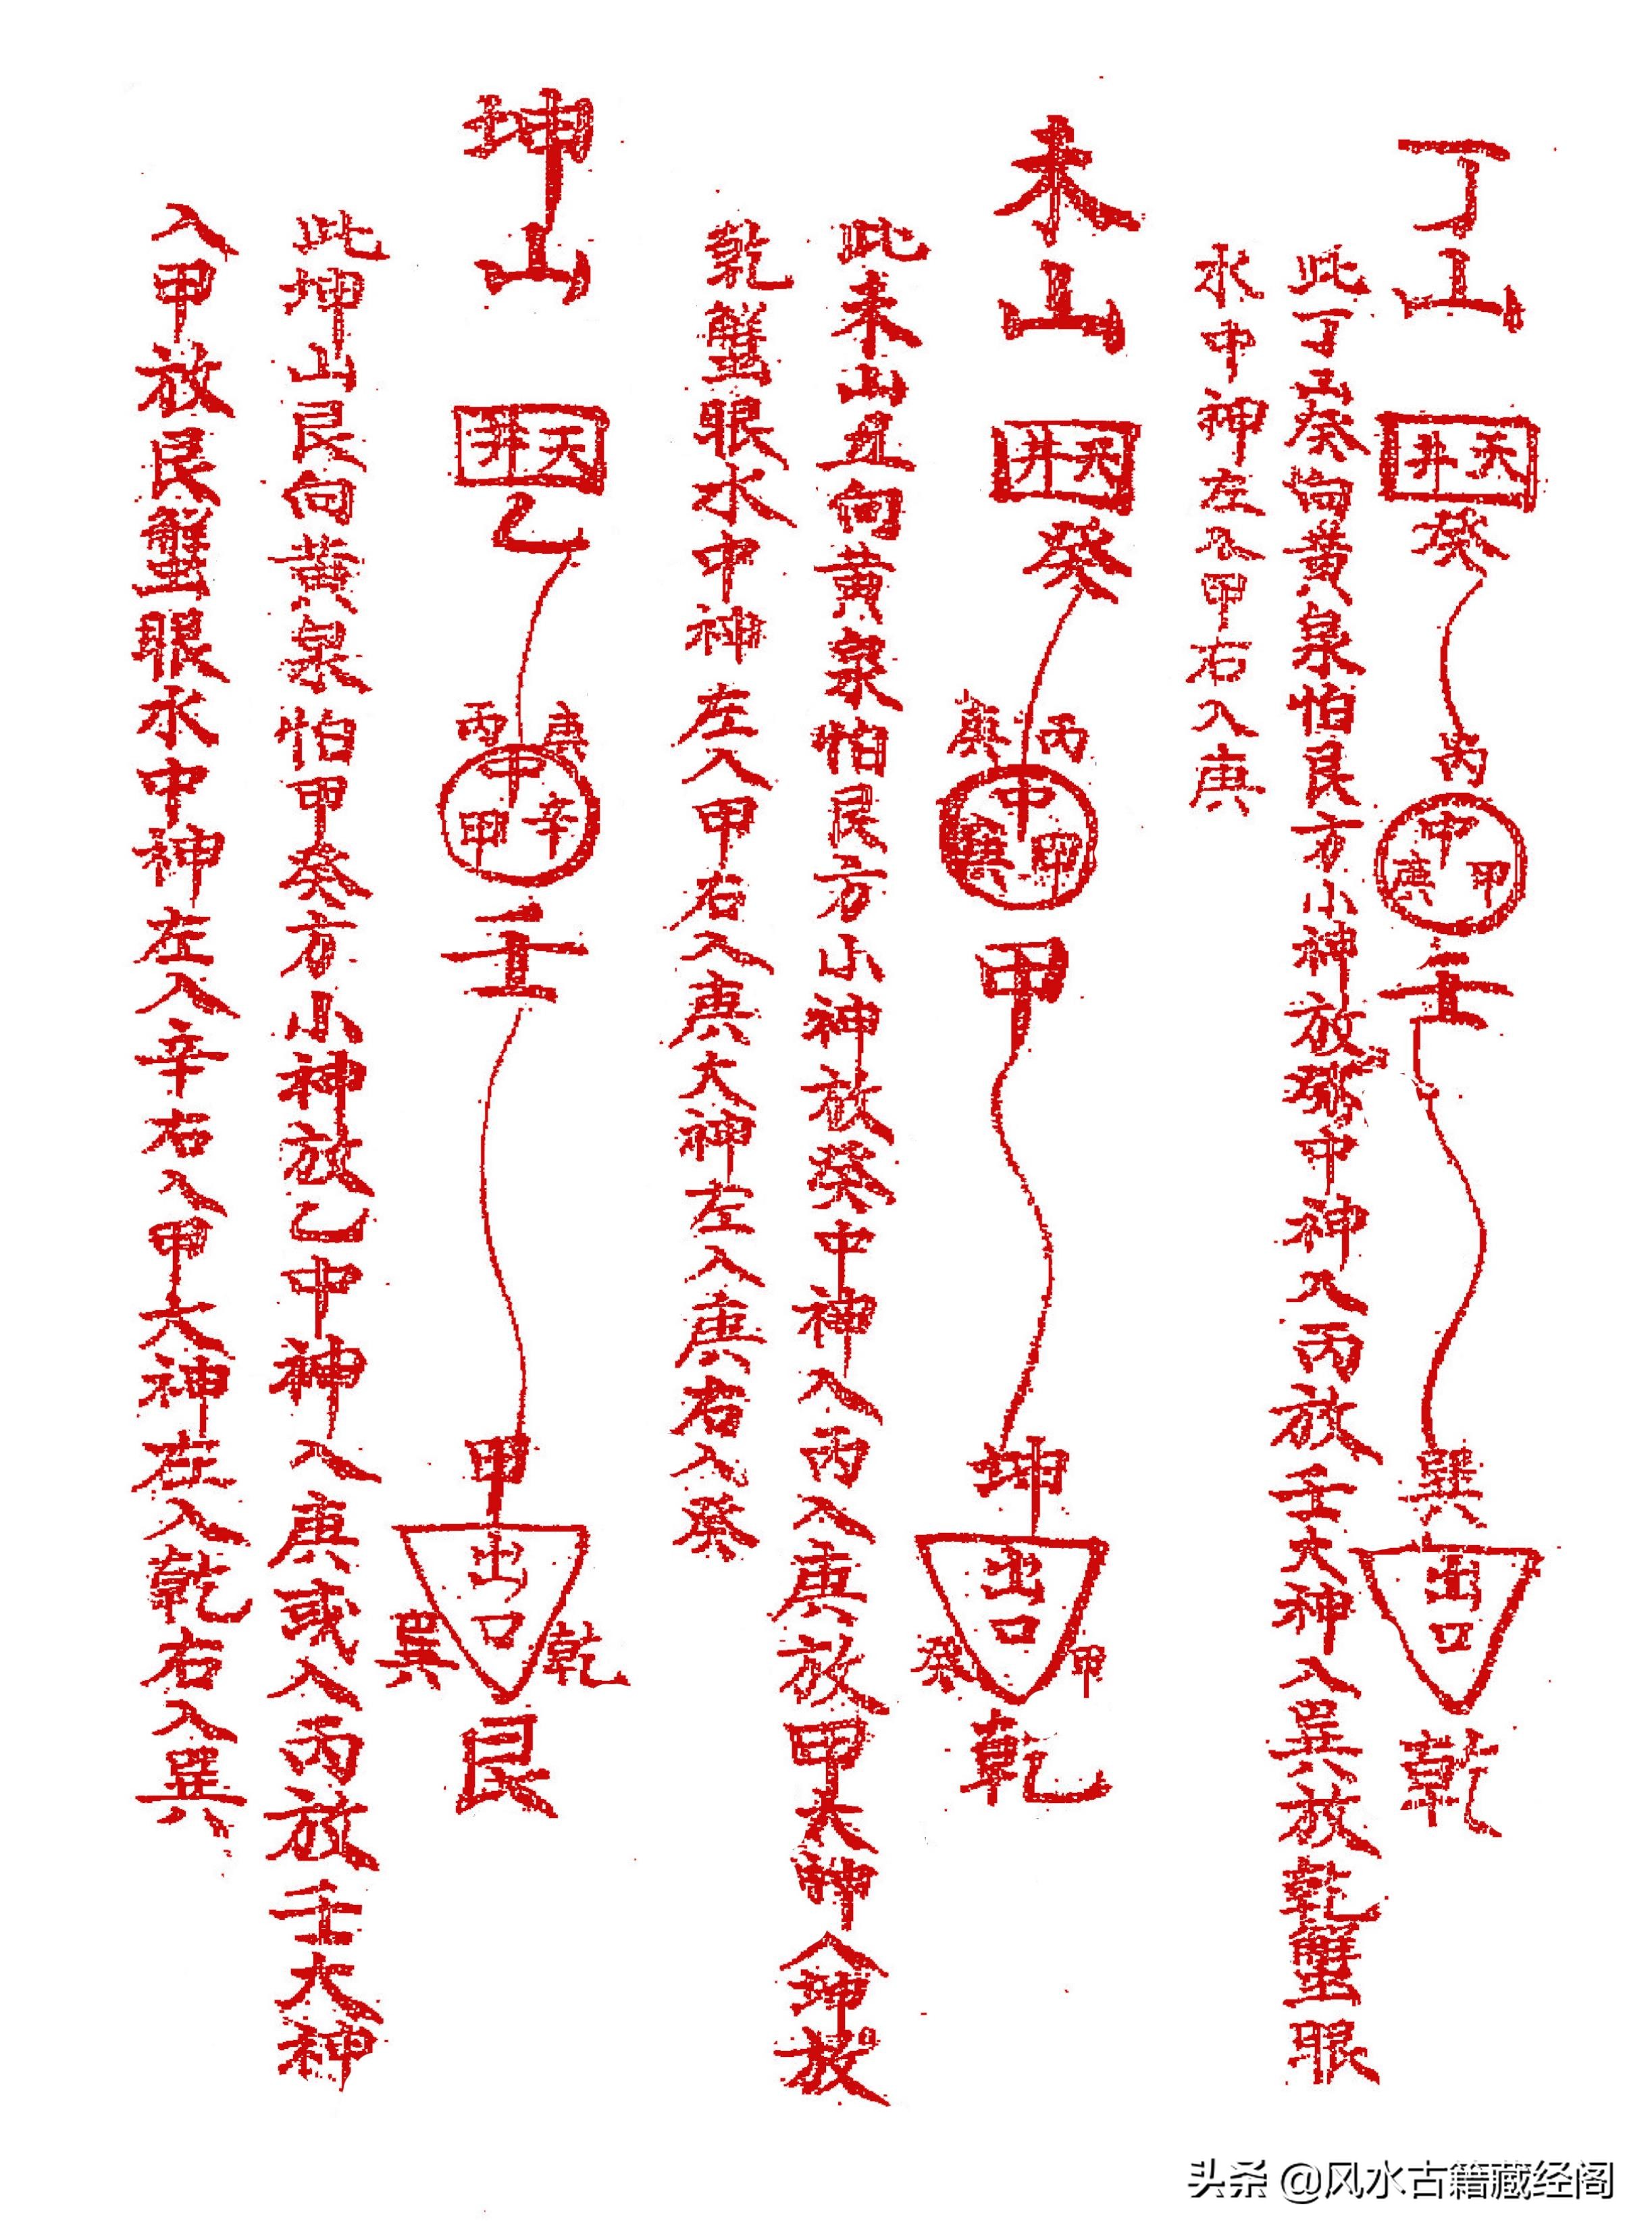 丁山
天井
癸
丙
中
甲
庚
壬
巽
出口
乾
此丁山癸向黃泉怕艮方小神放中神入丙放壬大神入巽放乾蟹眼
水中神左入甲右入庚
未山
天井
癸
丙
庚
中
甲
甲
坤
出口
甲
癸
乾
此未山丑向黃泉怕艮方小神放癸中神入丙入庚放甲大神入坤放
乾蟹眼水中神左入甲右入庚大神左入庚右入癸
坤山
天井
乙
庚
丙
中
辛
甲
壬
甲
出口
乾
巽
艮
此坤山艮向黃泉怕甲癸方小神放乙中神入庚或入丙放壬大神
入甲放艮蟹眼水中神左入辛右入甲大神左入乾右入巽
头条 @风水古籍藏经阁